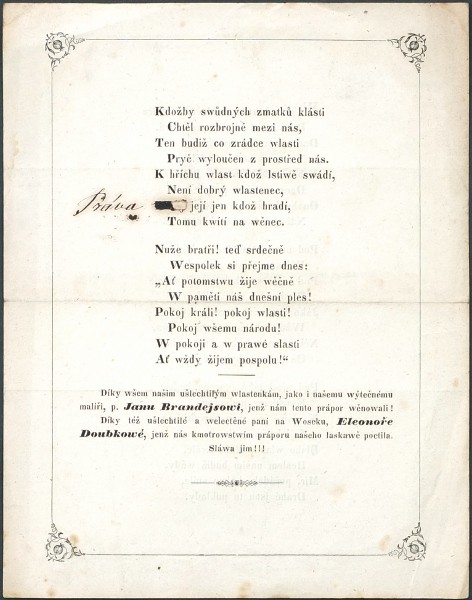 Kdožby swůdných zmatků klásti
Chtěl rozbrojně mezi nás,
Ten budiž co zrádce wlasti
Pryč wyloučen z prostřed nás.
K hříchu wlast kdož lstiwě swádí,
Není dobrý wlastenec,
Práva její jen kdož hradí,
Tomu kwítí na wěnec.
Nuže bratři! teď srdečně
Wespolek si přejme dnes:
„Ať potomstwu žije wěčně
W paměti náš dnešní ples!
Pokoj králi! pokoj wlasti!
Pokoj wšemu národu!
W pokoji a w prawé slasti
Ať wždy žijem pospolu!“
Díky wšem našim ušlechtilým wlastenkám, jako i našemu wýtečnému
malíři, p. Janu Brandejsowi, jenž nám tento prápor wěnowali!
Díky též ušlechtilé a welectěné paní na Wosecku, Eleonoře
Doubkowé, jenž nás kmotrowstwím práporu našeho laskawě poctila.
Sláwa jim!!!